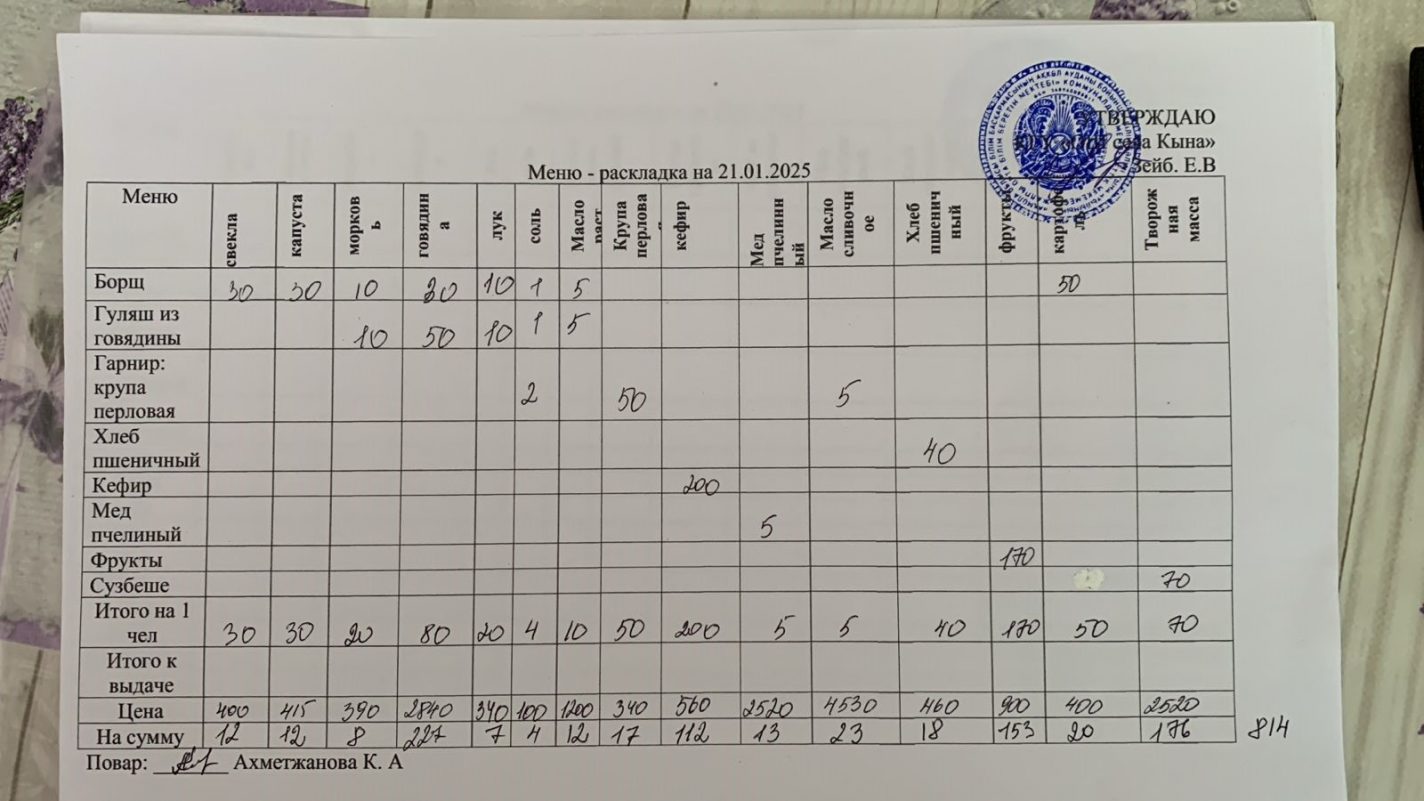 УТВЕРЖДАЮ
села Кына»
Зейб. Е.В
Меню - раскладка на 21.01.2025
Меню свекла капуста морковь говядина лук соль Масло раст Крупа перлова кефир Мед пчелинный Масло сливочное Хлеб пшеничный фрукты картофель Творожная масса
Борщ 30 30 10 30 10 1 5 50
Гуляш из говядины 10 50 10 1 5
Гарнир: крупа перловая 2 50 5
Хлеб пшеничный 40
Кефир 200
Мед пчелиный 5
Фрукты 170
Сузбеше 70
Итого на 1 чел 30 30 20 80 20 4 10 50 200 5 5 40 170 50 70
Итого к выдаче
Цена 400 415 390 2840 340 100 1200 340 560 2520 4530 460 900 400 2520
На сумму 12 12 8 227 7 4 12 17 112 13 23 18 153 20 176 814
Повар: Ахметжанова К. А